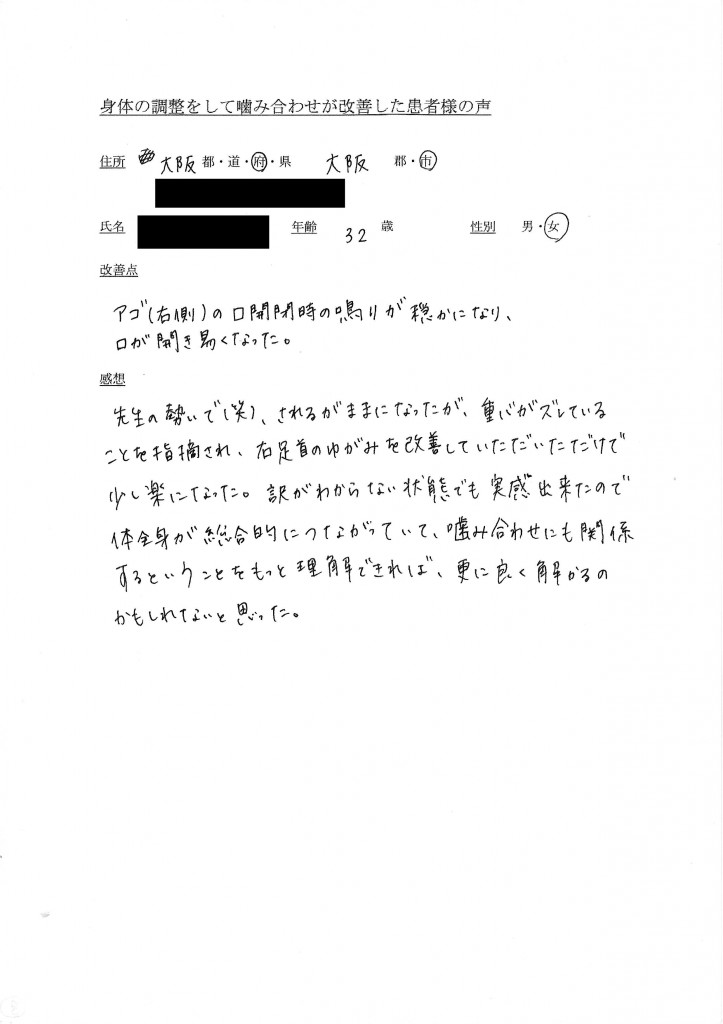 身体の調整をして噛み合わせが改善した患者様の声
住所 大阪 都・道・府・県 大阪 郡・市
氏名 年齢 32 歳 性別 男・女
改善点
アゴ(右側)の口開閉時の鳴りが穏かになり、
口が開き易くなった。
感想
先生の勢いで(笑)、されるがままになったが、重心がズレている
ことを指摘され、右足首のゆがみを改善していただいただけで
少し楽になった。訳がわからない状態でも実感出来たので
体全身が総合的につながっていて、噛み合わせにも関係
するということをもっと理解できれば、更に良く解かるの
かもしれないと思った。